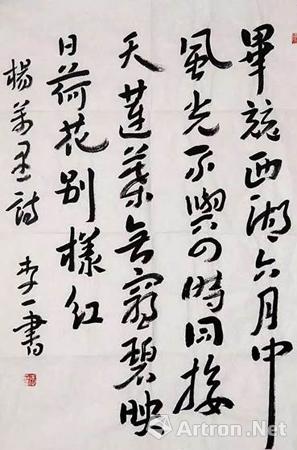 畢竟西湖六月中
風光不與四時同接
天蓮葉無窮碧映
日荷花別樣紅
楊萬里詩 李一書
Artron.Net